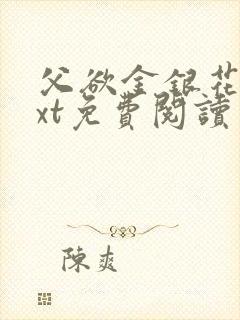 父欲金銀花
xt免費閱讀
陳爽